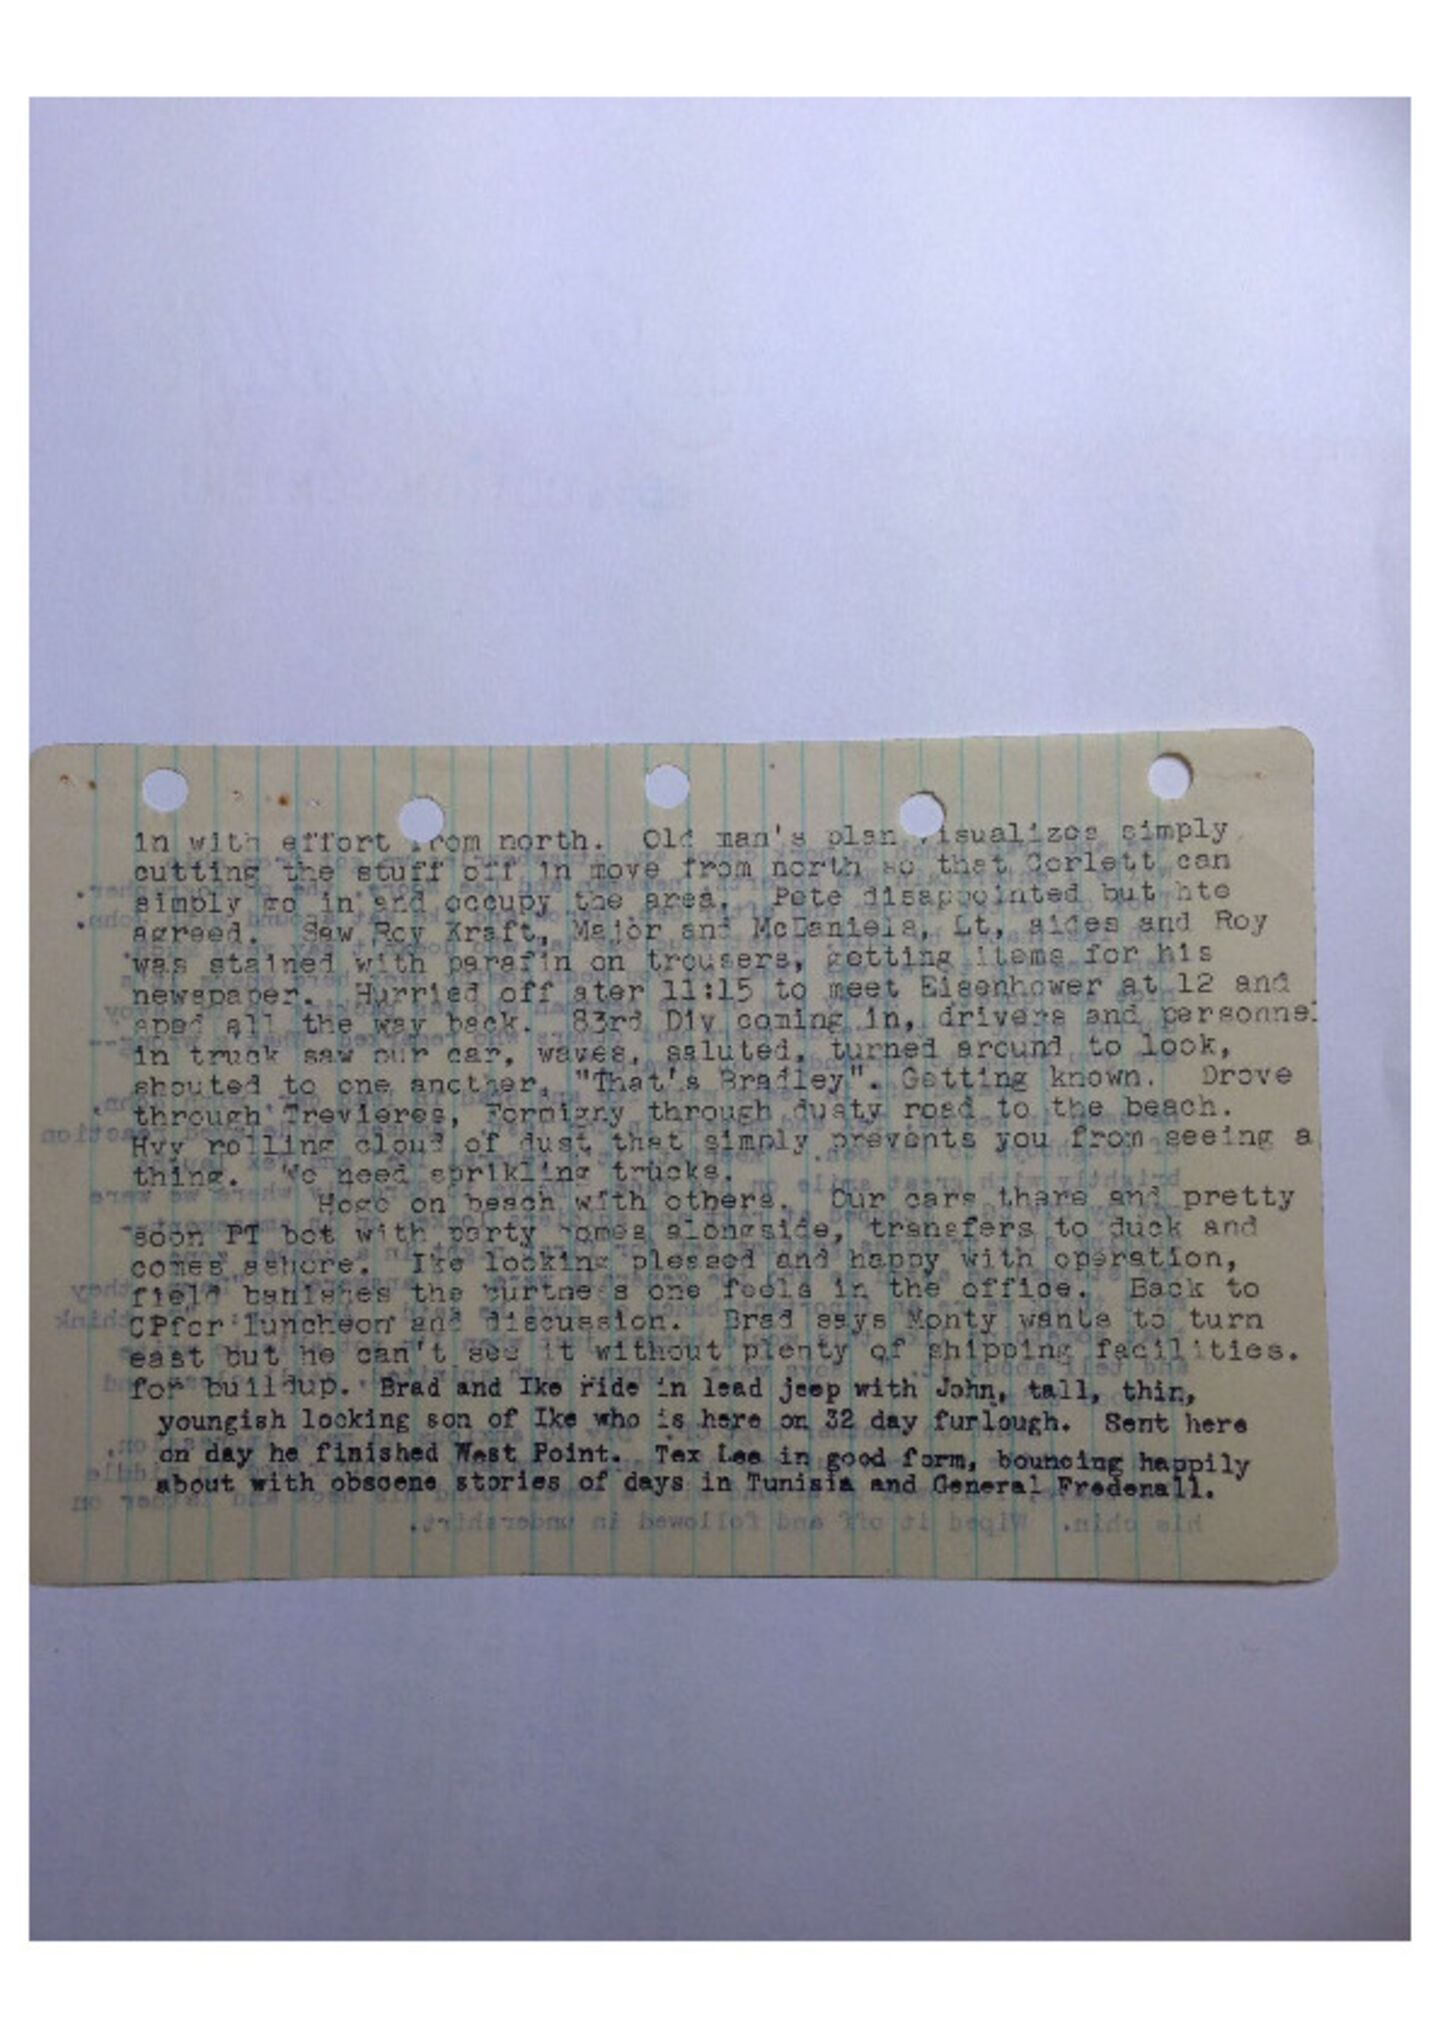 in with effort from north. Old man's plan visualizes simply
cutting the stuff off in move from north so that Corlett can
simply go in and occupy the area. Pete disappointed but hte
agreed. Saw Roy Kraft, Major and McDaniels, Lt, aides and Roy
was stained with parafin on trousers, getting items for his
newspaper. Hurried off ater 11:15 to meet Eisenhower at 12 and
sped all the way back. 83rd Div coming in, drivers and personnel
in truck saw our car, waves, saluted, turned around to look,
shouted to one another, "That's Bradley". Getting known. Drove
through Trevieres, Formigny through dusty road to the beach.
Hvy rolling cloud of dust that simply prevents you from seeing a
thing. We need sprikling trucks.
Hoge on beach with others. Our cars there and pretty
soon PT bot with party comes alongside, transfers to duck and
comes ashore. Ike looking plessed and happy with operation,
field banishes the curtness one feels in the office. Back to
CPfor luncheon and discussion. Brad says Monty wants to turn
east but he can't see it without plenty of shipping facilities.
for buildup. Brad and Ike ride in lead jeep with John, tall, thin,
youngish looking son of Ike who is here on 32 day furlough. Sent here
on day he finished West Point. Tex Lee in good form, bouncing happily
about with obscene stories of days in Tunisia and General Fredenall.
his chin. Wiped it off and followed in undershirt.